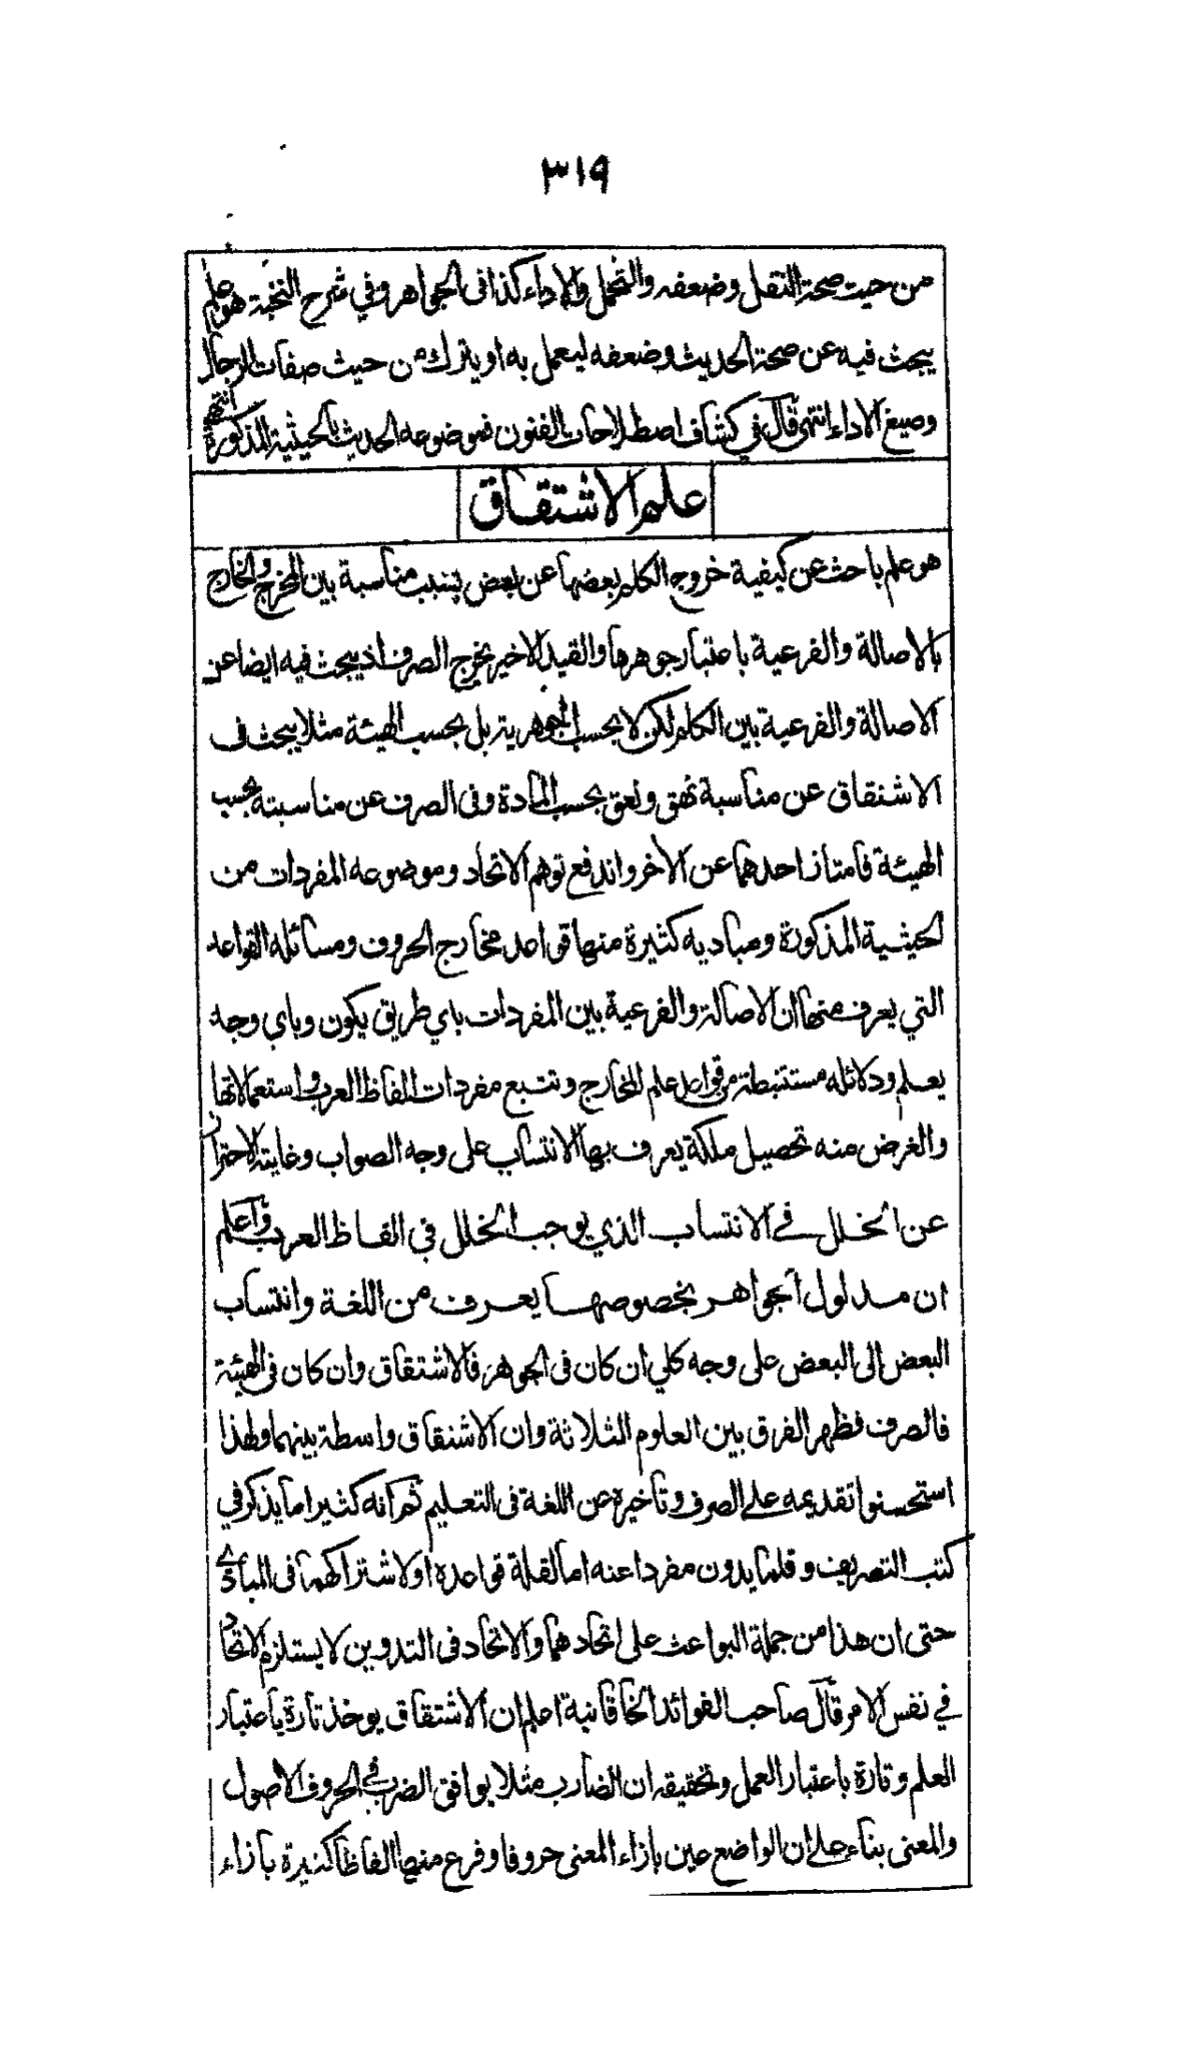 ٣١٩
من حيث صحة النقل وضعفه والتحمل والاداء كذا فى الجواهر وفي شرح النخبة هو علم
يبحث فيه عن صحة الحديث وضعفه ليعمل به او يترك من حيث صفات الرجال
وصيغ الاداء انتهى قال في كشاف اصطلاحات الفنون فموضوعه الحديث بالحيثية المذكورة انتهى
علم الاشتقاق
هو علم باحث عن كيفية خروج الكلم بعضها عن بعض بسبب مناسبة بين المخرج والخارج
بالاصالة والفرعية باعتبار جوهرها والقيد الاخير يخرج الصرف اذ يبحث فيه ايضا عن
الاصالة والفرعية بين الكلم لكن لا بحسب الجوهرية بل بحسب الهيئة مثلا يبحث فى
الاشتقاق عن مناسبة نهق ونعق بحسب المادة وفى الصرف عن مناسبته بحسب
الهيئة فامتاز احدهما عن الآخر واندفع توهم الاتحاد وموضوعه المفردات من
الحيثية المذكورة ومباديه كثيرة منها قواعد مخارج الحروف ومسائله القواعد
التي يعرف منها ان الاصالة والفرعية بين المفردات باي طريق يكون وباي وجه
يعلم ودلائله مستنبطة من قواعد علم المخارج وتتبع مفردات الفاظ العرب واستعمالاتها
والغرض منه تحصيل ملكة يعرف بها الانتساب على وجه الصواب وغايته الاحتراز
عن الخلل في الانتساب الذي يوجب الخلل في الفاظ العرب واعلم
ان مدلول الجواهر بخصوصها يعرف من اللغة وانتساب
البعض الى البعض على وجه كلي ان كان فى الجوهر فالاشتقاق وان كان فى الهيئة
فالصرف فظهر الفرق بين العلوم الثلاثة وان الاشتقاق واسطة بينهما ولهذا
استحسنوا تقديمه على الصرف وتاخيره عن اللغة فى التعليم ثم انه كثيرا ما يذكر في
كتب التصريف وقلما يدون مفردا عنه اما لقلة قواعده او لاشتراكهما فى المبادي
حتى ان هذا من جملة البواعث على اتحادهما والاتحاد فى التدوين لا يستلزم الاتحاد
في نفس الامر قال صاحب الفوائد الخاقانية اعلم ان الاشتقاق يوخذ تارة باعتبار
العلم وتارة باعتبار العمل وتحقيقه ان الضارب مثلا يوافق الضرب في الحروف الاصول
والمعنى بناء على ان الواضع عين بازاء المعنى حروفا وفرع منها الفاظا كثيرة بازاء